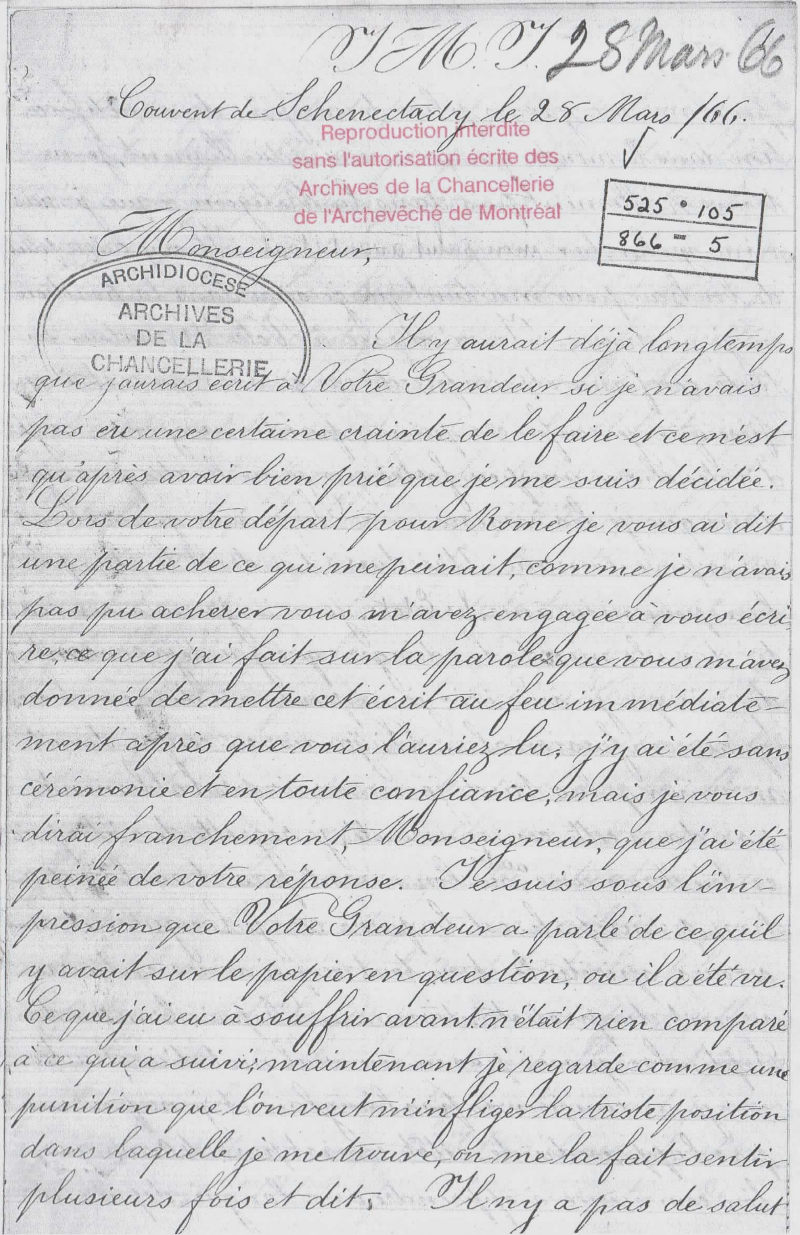 J. M. J. 28 Mars 66
Couvent de Schenectady le 28 Mars /66.
Reproduction interdite
sans l'autorisation écrite des
Archives de la Chancellerie
de l'Archevêché de Montréal
525 • 105
866 - 5
Monseigneur,
ARCHIDIOCESE
ARCHIVES
DE LA
CHANCELLERIE
Il y aurait déjà longtemps
que j'aurais écrit à Votre Grandeur si je n'avais
pas eu une certaine crainte de le faire et ce n'est
qu'après avoir bien prié que je me suis décidée.
Lors de votre départ pour Rome je vous ai dit
une partie de ce qui me peinait, comme je n'avais
pas pu achever vous m'avez engagée à vous écri-
re, ce que j'ai fait sur la parole que vous m'avez
donnée de mettre cet écrit au feu immédiate-
ment après que vous l'auriez lu, j'y ai été sans
cérémonie et en toute confiance, mais je vous
dirai franchement, Monseigneur, que j'ai été
peinée de votre réponse. Je suis sous l'im-
pression que Votre Grandeur a parlé de ce qu'il
y avait sur le papier en question, ou il a été vu.
Ce que j'ai eu à souffrir avant n'était rien comparé
à ce qui a suivi; maintenant je regarde comme une
punition que l'on veut m'infliger la triste position
dans laquelle je me trouve, on me la fait sentir
plusieurs fois et dit, Il n'y a pas de salut